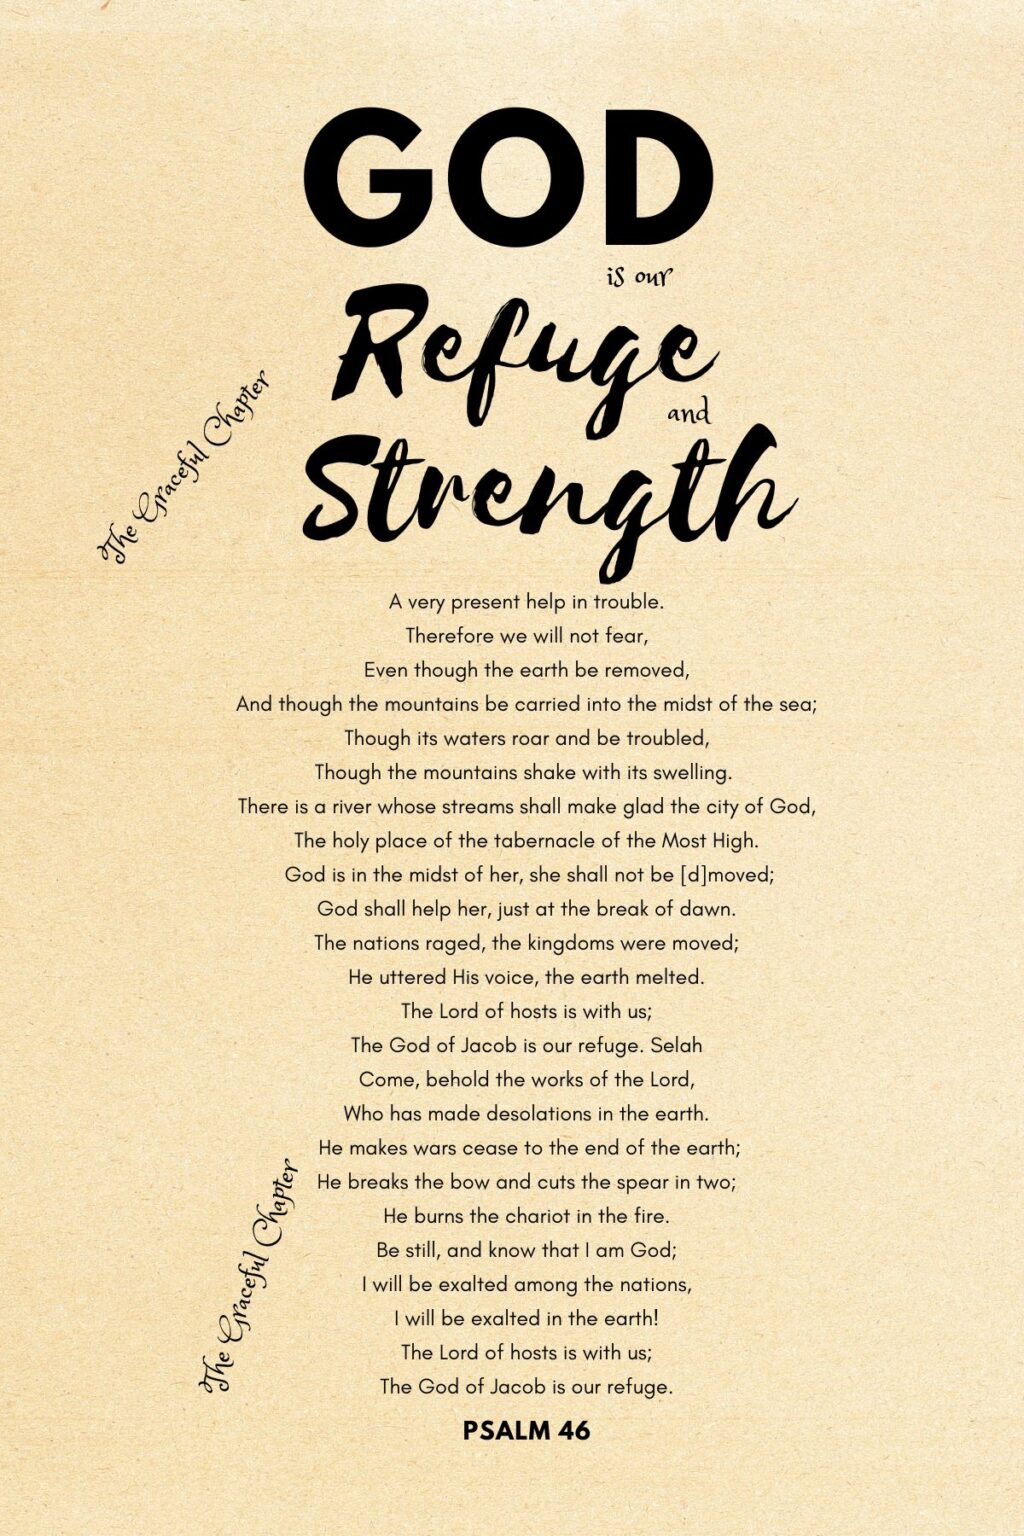 GOD
is our
Refuge
and
Strength
The Graceful Chapter
A very present help in trouble.
Therefore we will not fear,
Even though the earth be removed,
And though the mountains be carried into the midst of the sea;
Though its waters roar and be troubled,
Though the mountains shake with its swelling.
There is a river whose streams shall make glad the city of God,
The holy place of the tabernacle of the Most High.
God is in the midst of her, she shall not be [d]moved;
God shall help her, just at the break of dawn.
The nations raged, the kingdoms were moved;
He uttered His voice, the earth melted.
The Lord of hosts is with us;
The God of Jacob is our refuge. Selah
Come, behold the works of the Lord,
Who has made desolations in the earth.
He makes wars cease to the end of the earth;
He breaks the bow and cuts the spear in two;
He burns the chariot in the fire.
Be still, and know that I am God;
I will be exalted among the nations,
I will be exalted in the earth!
The Lord of hosts is with us;
The God of Jacob is our refuge.
The Graceful Chapter
PSALM 46